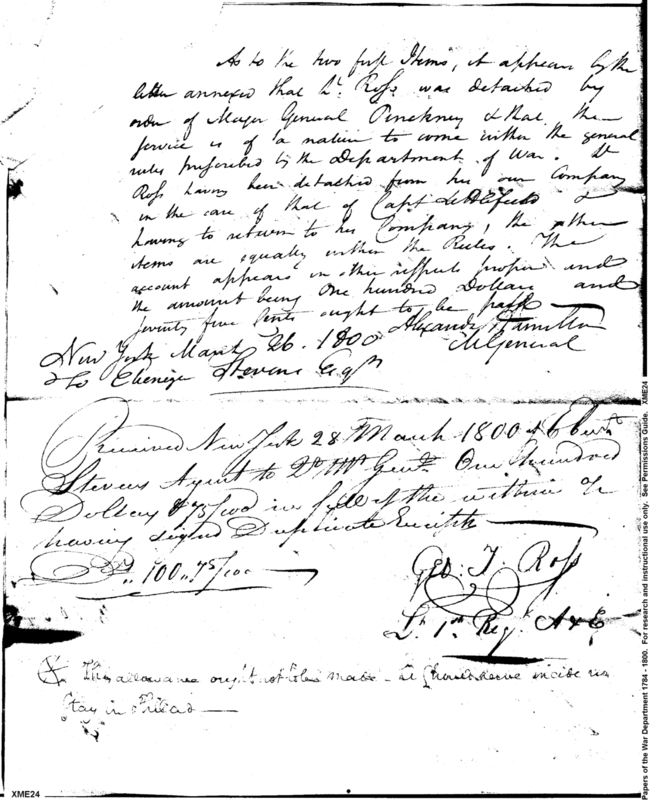 As to the two first Items, it appears by the
letter annexed that Lt. Ross was detached by
order of Major General Pinckney & that the
service is of a nature to come within the general
rules prescribed by the Department of War. Lt
Ross having been detached from his own Company
in the case of that of Capt Littlefield &
having to return to his Company, the other
items are equally within the Rules. The
account appears in other respects proper and
the amount being One hundred Dollars and
seventy five Cents ought to be paid
Alexandr Hamilton
New York March 26. 1800
M General
To Ebenezr Stevens Esqr
Received New York 28th March 1800 of Ebenr
Stevens Agent to Qr Mr Genl. One hundred
Dollars & 75/100 in full of the within
having signed Duplicate
Ds. 100,,75/100
Geo: T. Ross
Lt. 1st Regt. A & E
This allowance ought not to be made
Stay in
XME24
Papers of the War Department 1784 - 1800. For research and instructional use only. See Permissions Guide. XME24